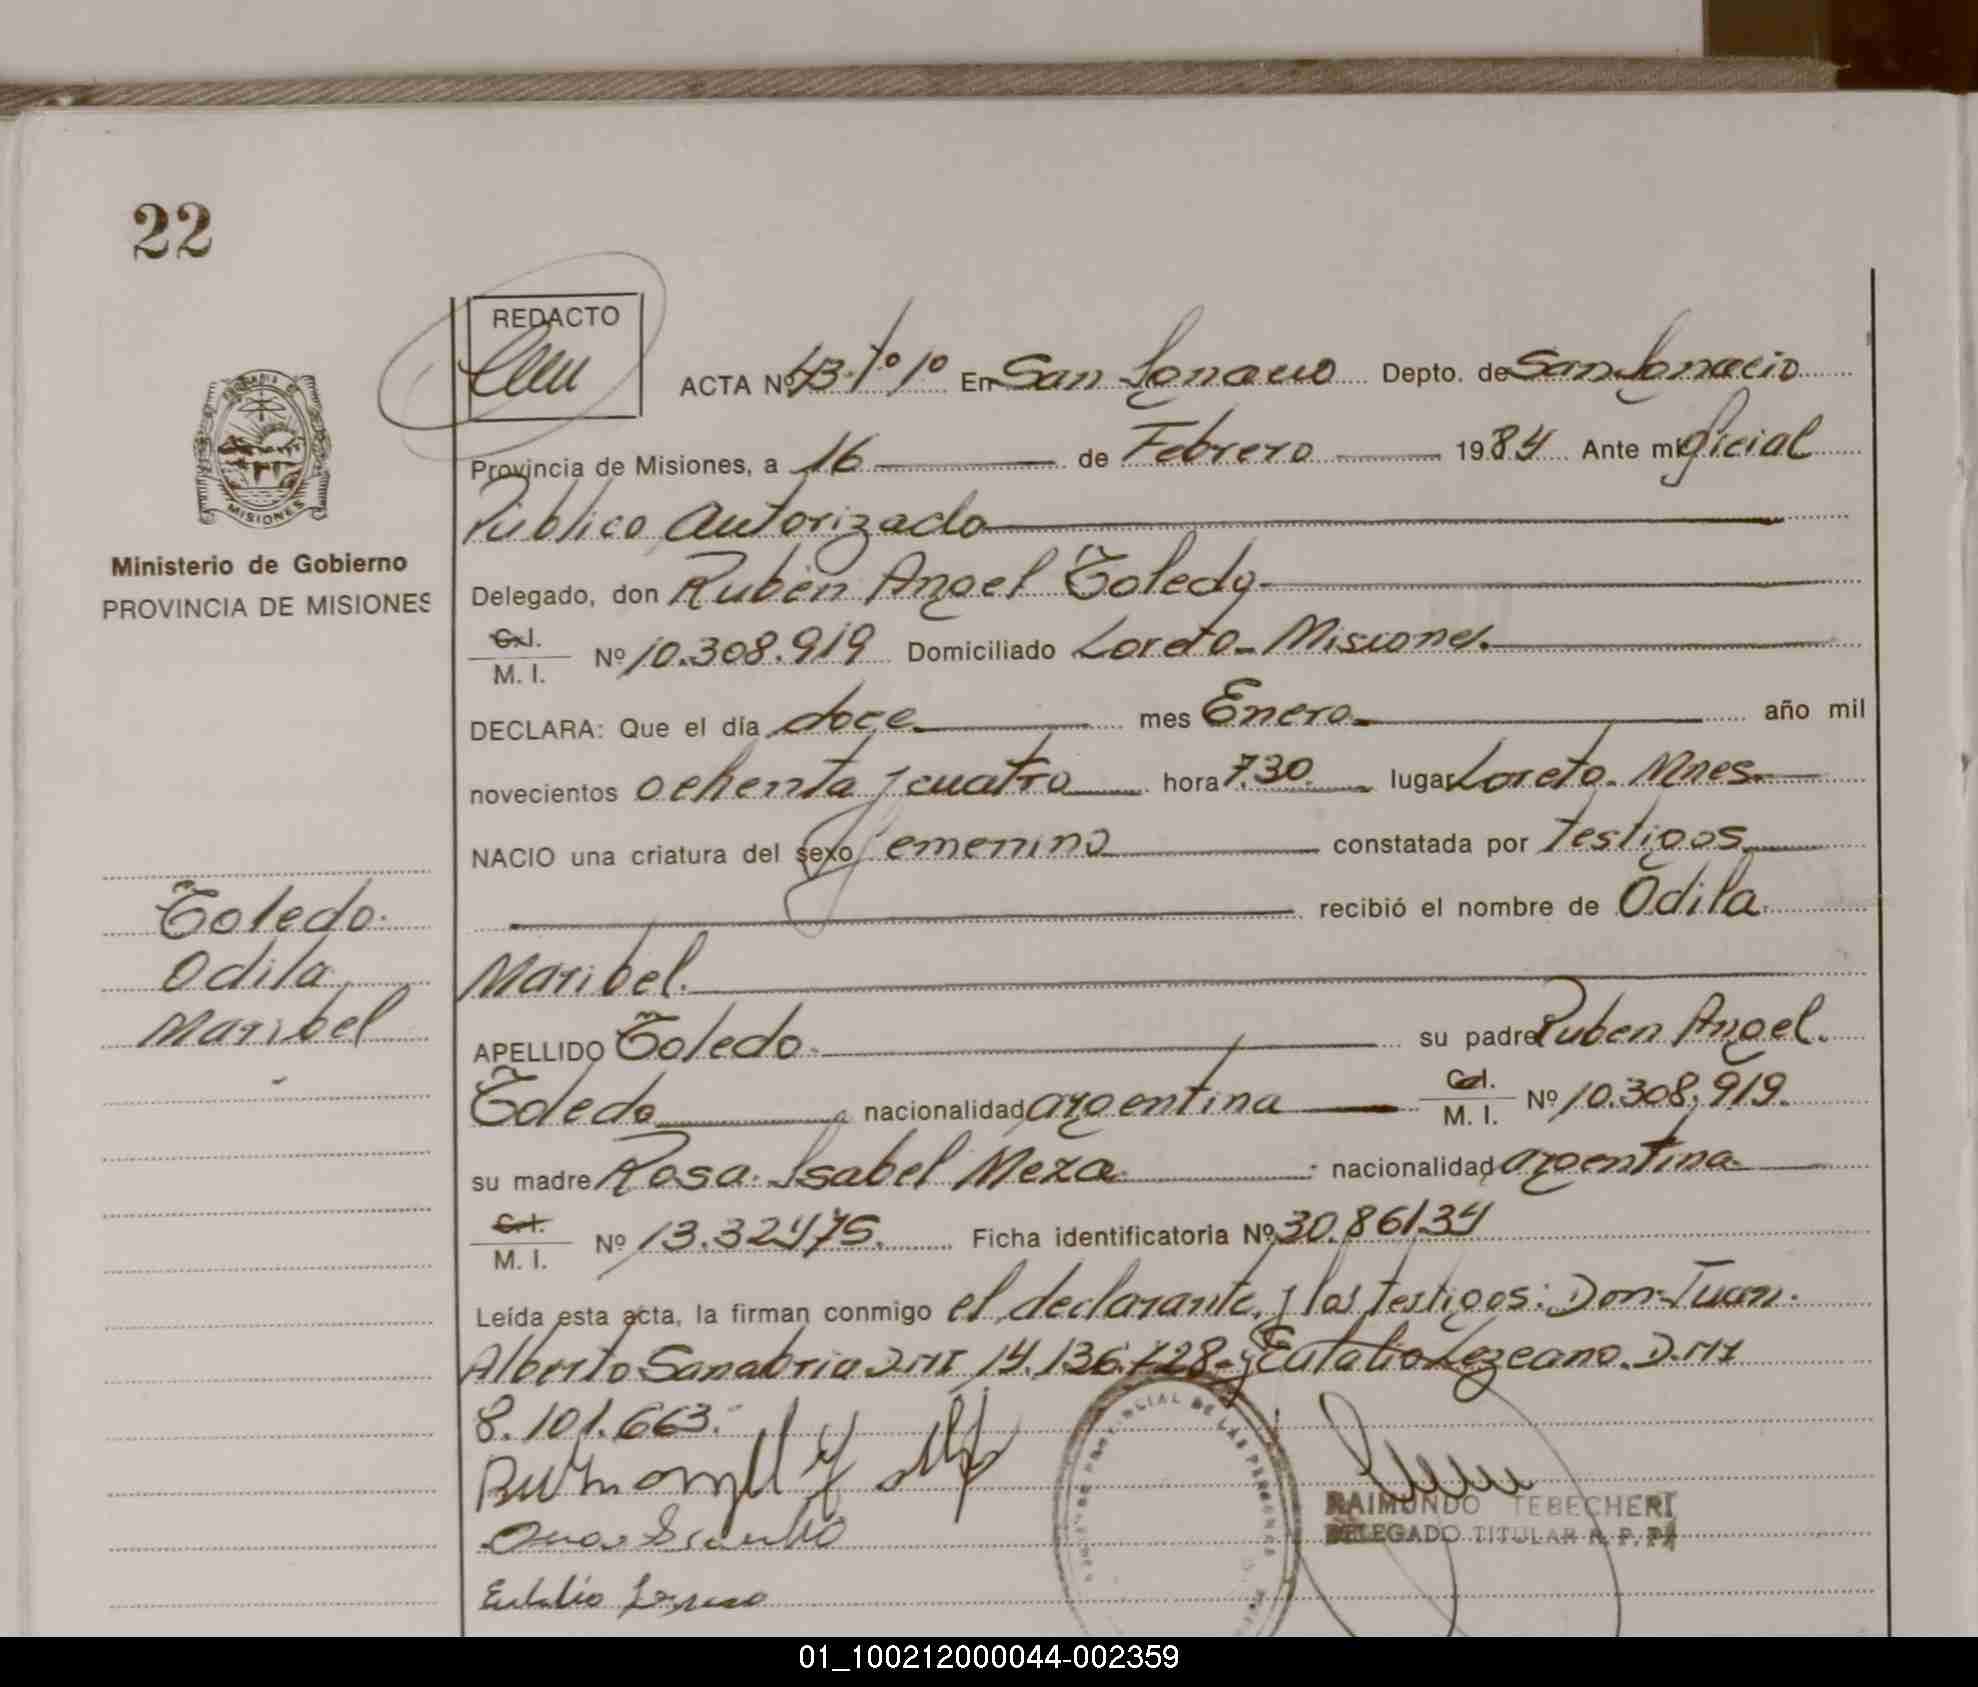 22
REDACTO
ACTA Nº 43. Tº 1º En San Ignacio Depto. de San Ignacio
Provincia de Misiones, a 16 de Febrero 1984 Ante mi Oficial
Público Autorizado
Delegado, don Ruben Angel Toledo
MISIONES
Ministerio de Gobierno
PROVINCIA DE MISIONES
C.I.
M. I. Nº 10.308.919 Domiciliado Loreto - Misiones.
DECLARA: Que el día doce mes Enero año mil
novecientos ochenta y cuatro hora 7.30 lugar Loreto. Mnes.
NACIO una criatura del sexo femenino constatada por testigos
recibió el nombre de Odila
Maribel.
Toledo.
Odila
Maribel
APELLIDO Toledo. su padre Ruben Angel.
Toledo nacionalidad argentina C.I. M. I. Nº 10.308.919.
su madre Rosa Isabel Meza nacionalidad argentina
C.I.
M. I. Nº 13.32475. Ficha identificatoria Nº 30.86134
Leída esta acta, la firman conmigo el declarante, y los testigos: Don Juan.
Alberto Sanabria D.M.I 14.136.728 - y Eulalio Lezcano. D.M.I
8.101.663.
Eulalio Lezcano
RAIMUNDO TEBECHERI
DELEGADO TITULAR R. P. P.
01_100212000044-002359